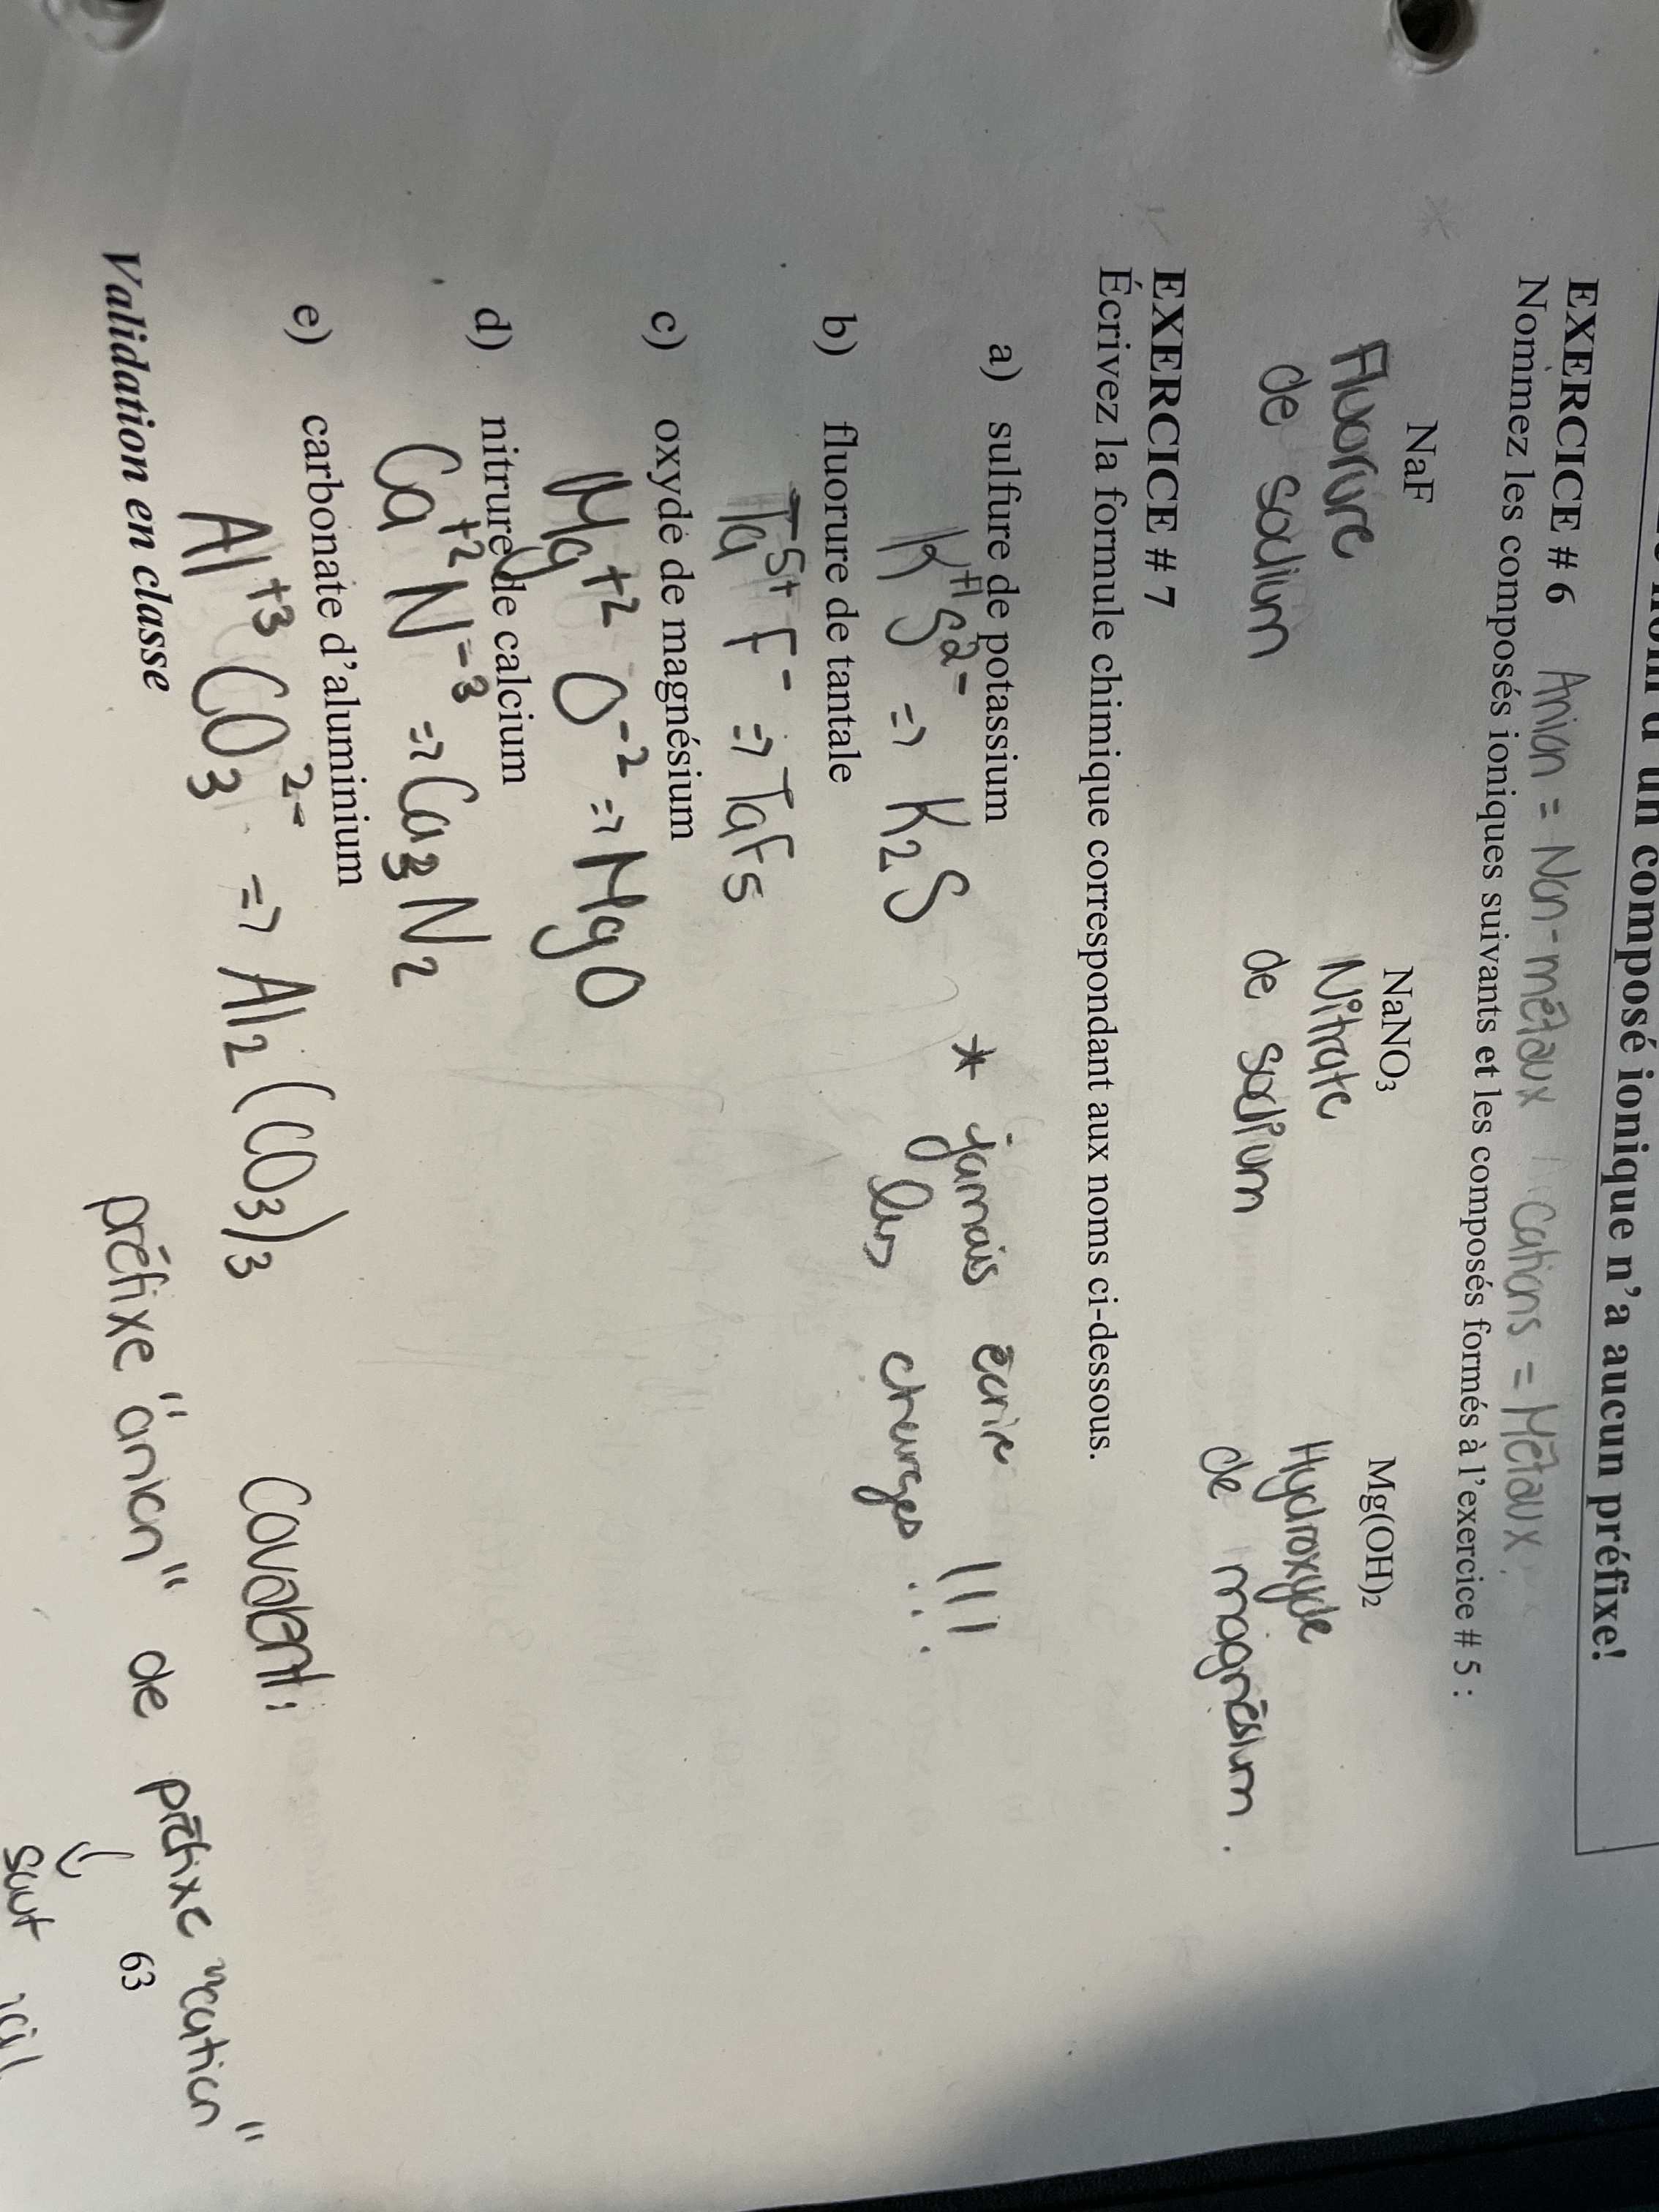 nom d'un composé ionique n'a aucun préfixe!
EXERCICE # 6 Anion = Non-métaux Cations = Métaux
Nommez les composés ioniques suivants et les composés formés à l'exercice # 5 :
NaF NaNO₃ Mg(OH)₂
Fluorure Nitrate Hydroxyde
de sodium de sodium de magnésium.
EXERCICE # 7
Écrivez la formule chimique correspondant aux noms ci-dessous.
a) sulfure de potassium * jamais écrire !!!
K⁺¹ S²⁻ => K₂S les charges
b) fluorure de tantale
Ta⁵⁺ F⁻ => TaF₅
c) oxyde de magnésium
Mg⁺² O⁻² => MgO
d) nitrure de calcium
Ca⁺² N⁻³ => Ca₃N₂
e) carbonate d'aluminium
Al⁺³ CO₃²⁻ => Al₂(CO₃)₃ Covalent:
Validation en classe préfixe "anion" de préfixe "cation"
63
sauf